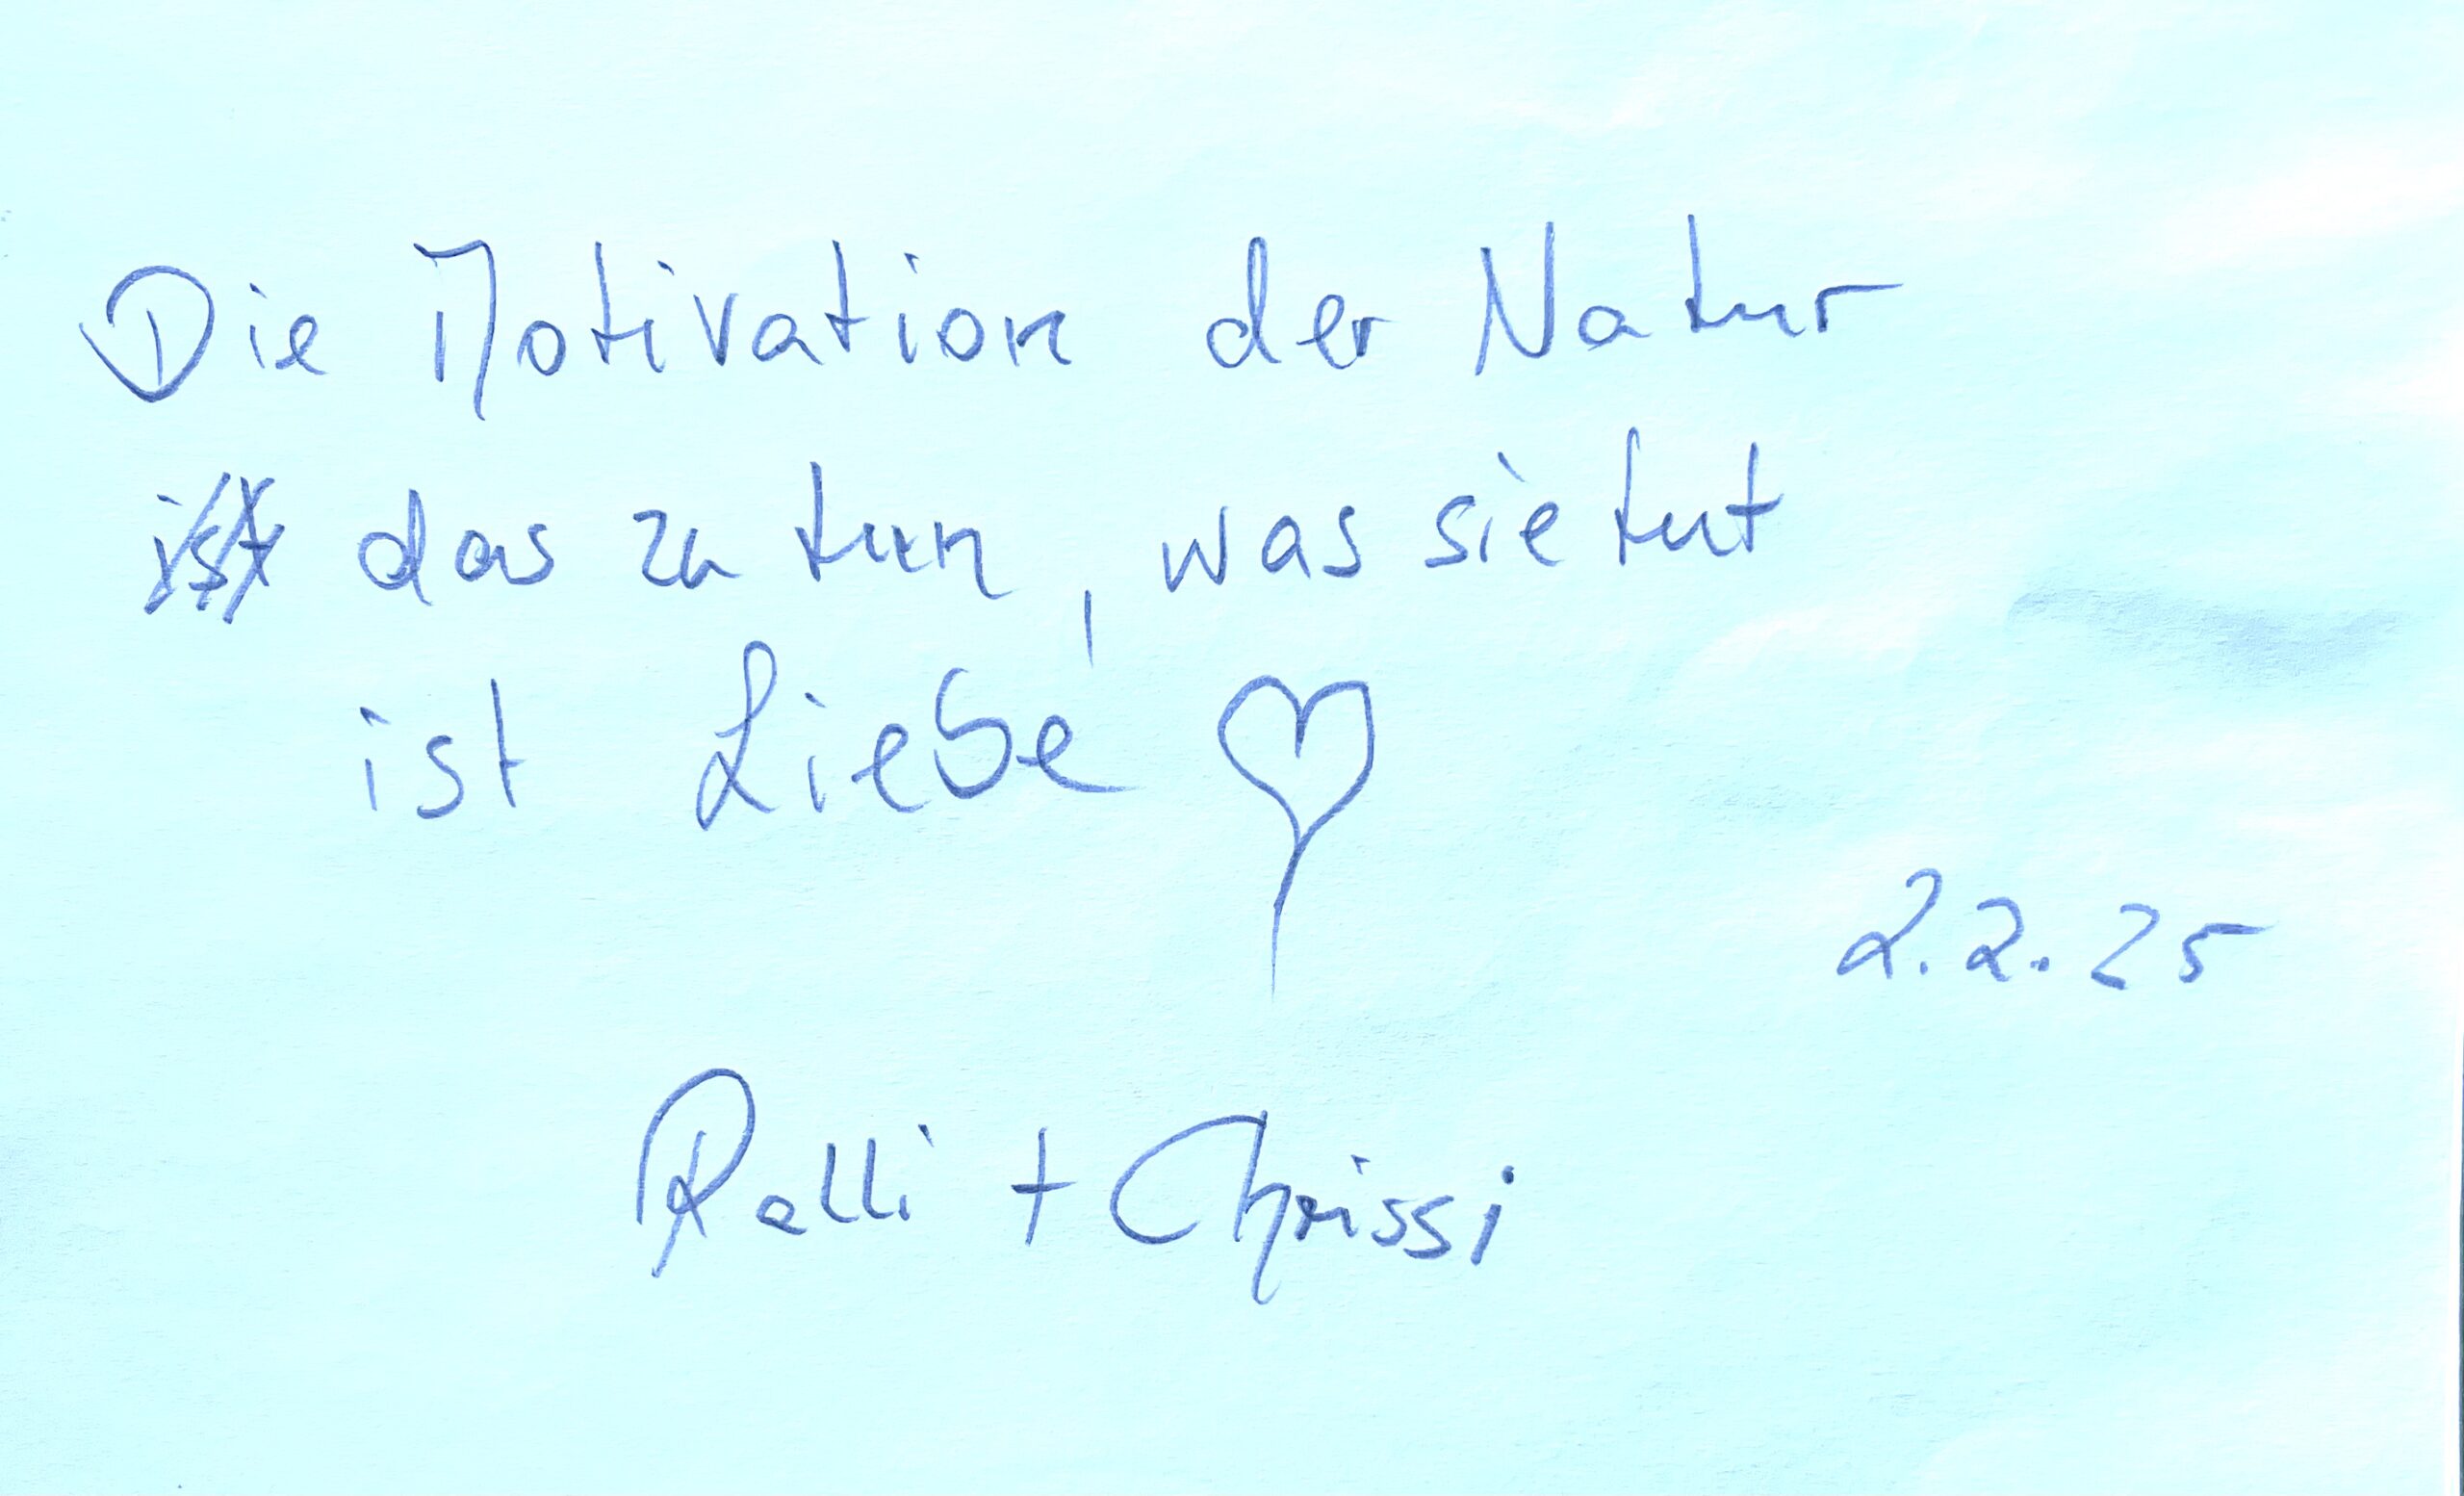 Die Motivation der Natur
ist das zu tun, was sie tut
ist Liebe ♡
2.2.25
Ralli + Chrissi